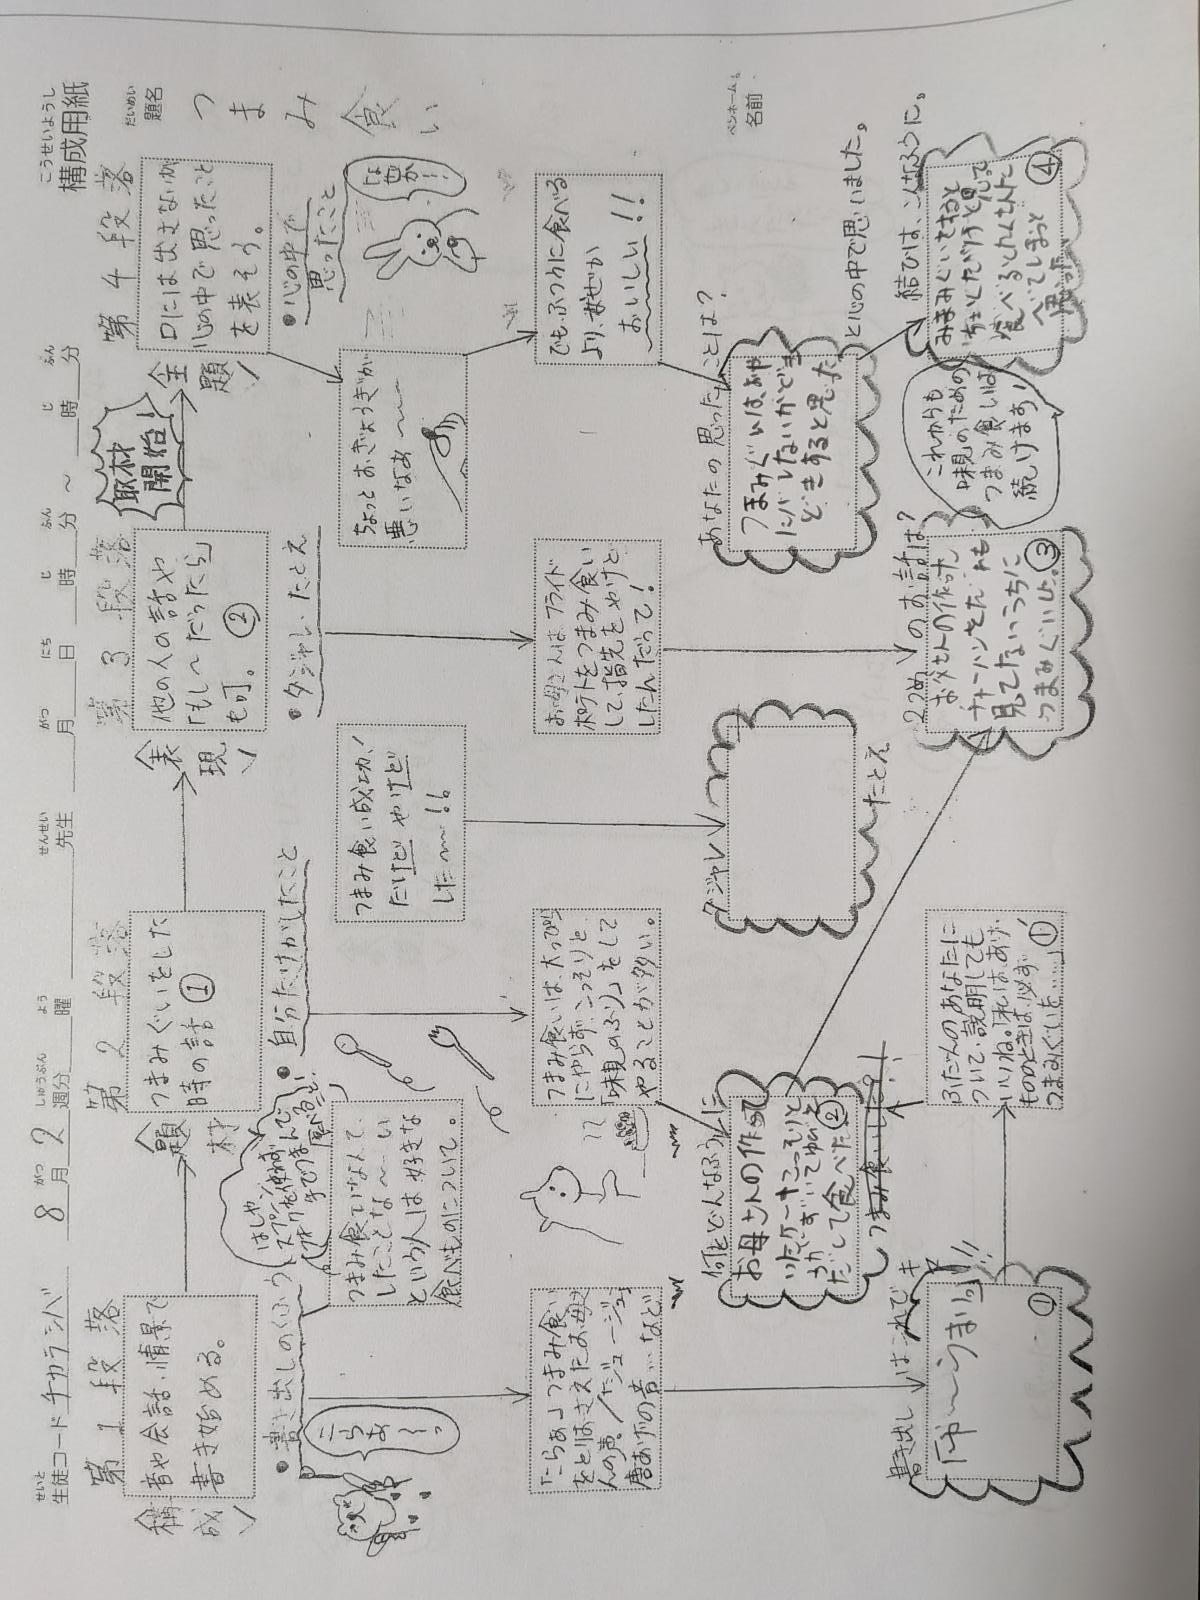 構成用紙
こうせいようし
生徒コード チカラシバ
せいと
8月2週分 曜 先生 月 日 時 分 ～ 時 分
がつ しゅうぶん よう せんせい がつ にち じ ふん じ ふん
題名 つまみ食い
だいめい
ペンネーム。
名前
第1段落
構成
音や会話・情景で
書き始める。
・書き出しのくふう
こらあ～っ
「こらあ」つまみ食い
をとりおさえたお母さ
んの声。/「ジュージュ」
唐あげの音…など
書き出しはこれでキマリ!!
「や～うまい」
①
第2段落
題材
つまみぐいをした
時の話 ①
・自分だけがしたこと
はしやスプーン、
フォークを使わず
手でつまんで
つまみ食いなんて、
したことな～い
という人は好きな
食べものについて。
つまみ食いは、大っぴら
にやらず、こっそりと、
「味見のふり」をして
やることが多い。
何をどんなふうに
お母さんの作って
いたケーキこっそりと
だして食べた。②
つまみ食いした?!
ふだんのあなたに
ついて、説明しても
いいね。「ぼくは、あげ
もののときは、必ず、
つまみぐいを……」①
第3段落
表現
他の人の話や
「もし～だったら」
も可。②
・ダジャレ・たとえ
つまみ食い成功!
だけどやけど
した～!!
お母さんは、フライド
ポテトをつまみ食い
して、指先をやけど
したんだって!
ダジャレ
たとえ
2つめのお話は?
お父さんの作った
チャーハンをだれも
見てないうちに
つまみぐいした。③
取材
開始!
第4段落
主題
口には出さないが
心の中で思ったこと
を表そう。
・心の中で
思ったこと
ちょっとおぎょうぎが
悪いなあ～
でも、ふつうに食べる
より、なぜか
おいしい!!
あなたの思ったことは?
つまみぐいは、おや
にバレないかどき
どきすると思った
と心の中で思いました。
結びは、こんなふうに。
④
これからも
味見のための
つまみ食いは
続けます!